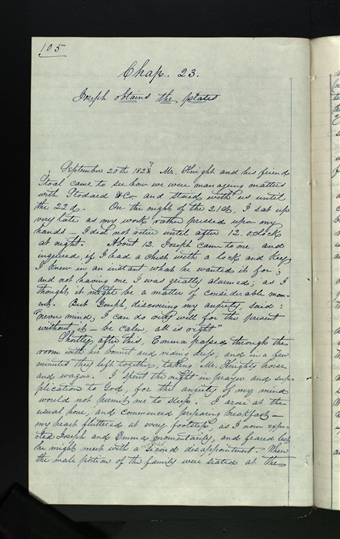 105
Chap. 23.
Joseph obtains the plates
September 20th 1827 Mr. Knight and his friend
Stoal came to see how we were managing matters
with Stodard & Co and staid with us until
the 22d. On the night of the 21st, I sat up
very late as my work rather pressed upon my
hands — I did not retire until after 12 oclock
at night. About 12. Joseph came to me and
inquired, if I had a chest with a lock and key
I knew in an instant what he wanted it for;
and not having one I was greatly alarmed; as I
thought it might be a matter of considerable mom-
ent. But Joseph, discovering my anxiety said:
"never mind, I can do very well for the present
without it — be calm, all is right"
Shortly after this, Emma passed through the
room with her bonnet and riding dress, and in a few
minutes they left together, taking Mr. Knights horse
and wagon. I spent the night in prayer and sup-
plication to God, for the anxiety of my mind
would not permit me to sleep. I arose at the
usual hour, and commenced preparing breakfast —
my heart fluttered at every footstep, as I now expe-
cted Joseph and Emma momentarily, and feared lest
he might meet with a second disappointment. When
the male portion of the family were seated at the